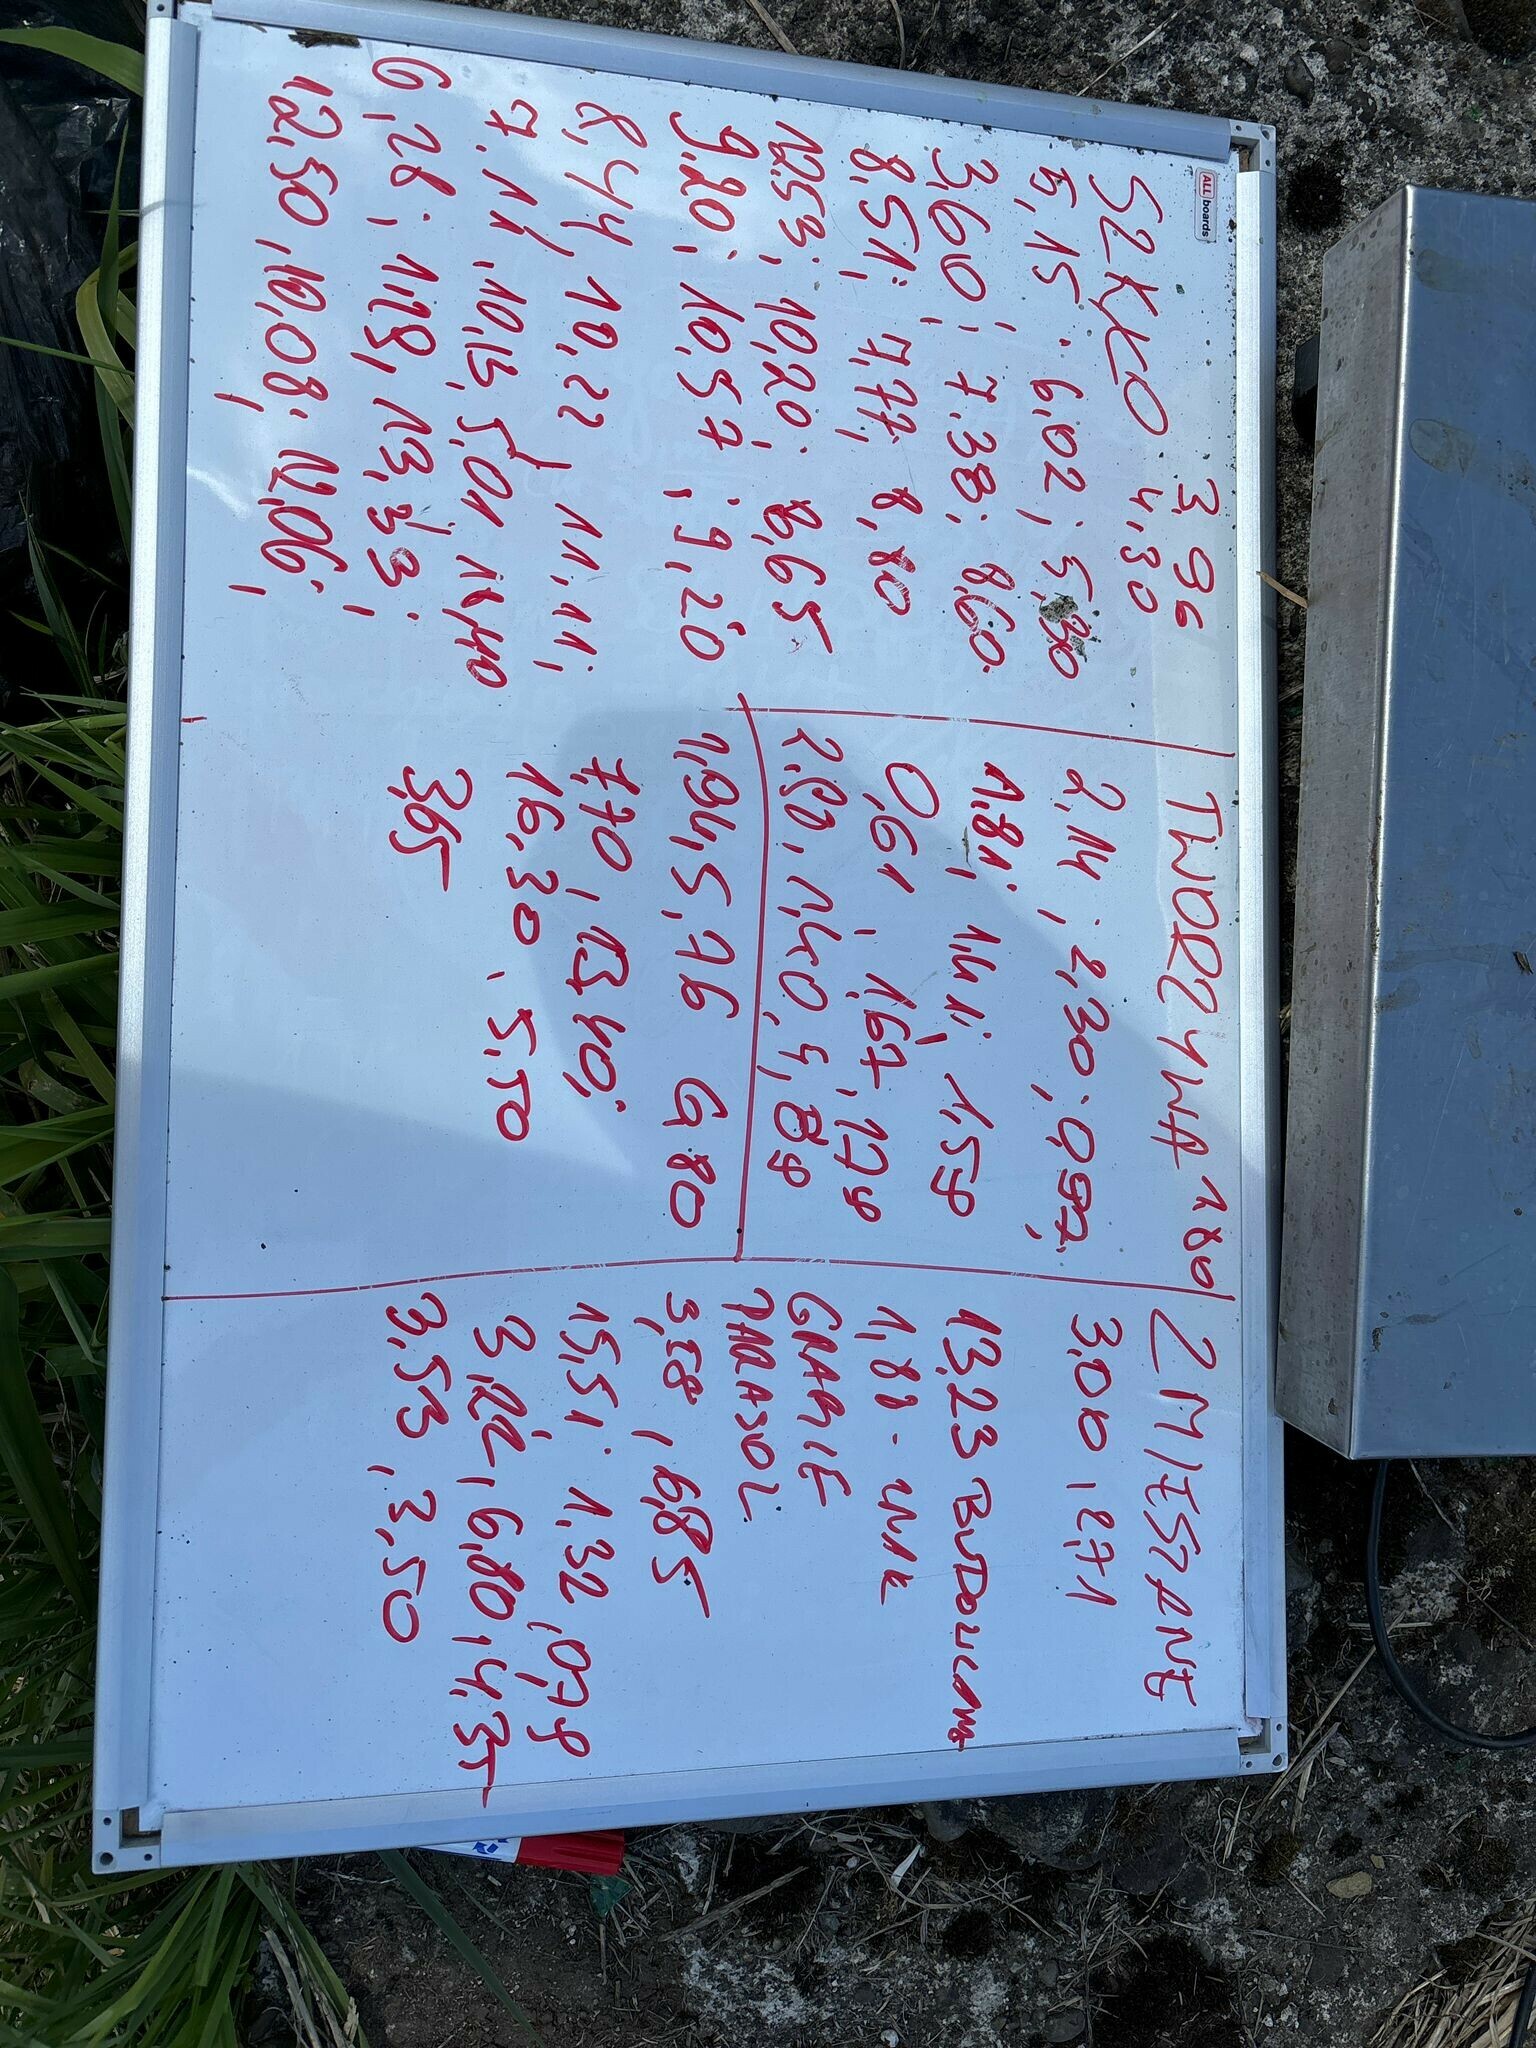 ALLboards
SZKŁO 3,96
4,30
5,15. 6,02; 5,30
3,60; 7,38; 8,60
8,51; 7,77, 8,80
12,53; 10,20; 8,65
9,20; 10,57; 9,20
8,44, 10,22, 11,11;
7,11, 10,15, 5,01, 11,40
6,28; 1,29, 13,33;
12,50, 10,08; 12,06;
TWORZYWA
2,14; 2,30; 0,97;
1,81; 1,41; 1,59
0,61, 1,67,
2,50, 1,40,
1,94, 5,76 6,80
7,70, 13,40;
16,30. 5,50
3,65
ZMIESZANE
3,00, 2,71
13,23 BUDOWLANE
1,88 -
GRABIE
PARASOL
3,58, 6,85
15,51. 1,32, 0,79
3,22, 6,80, 4,35
3,53, 3,50